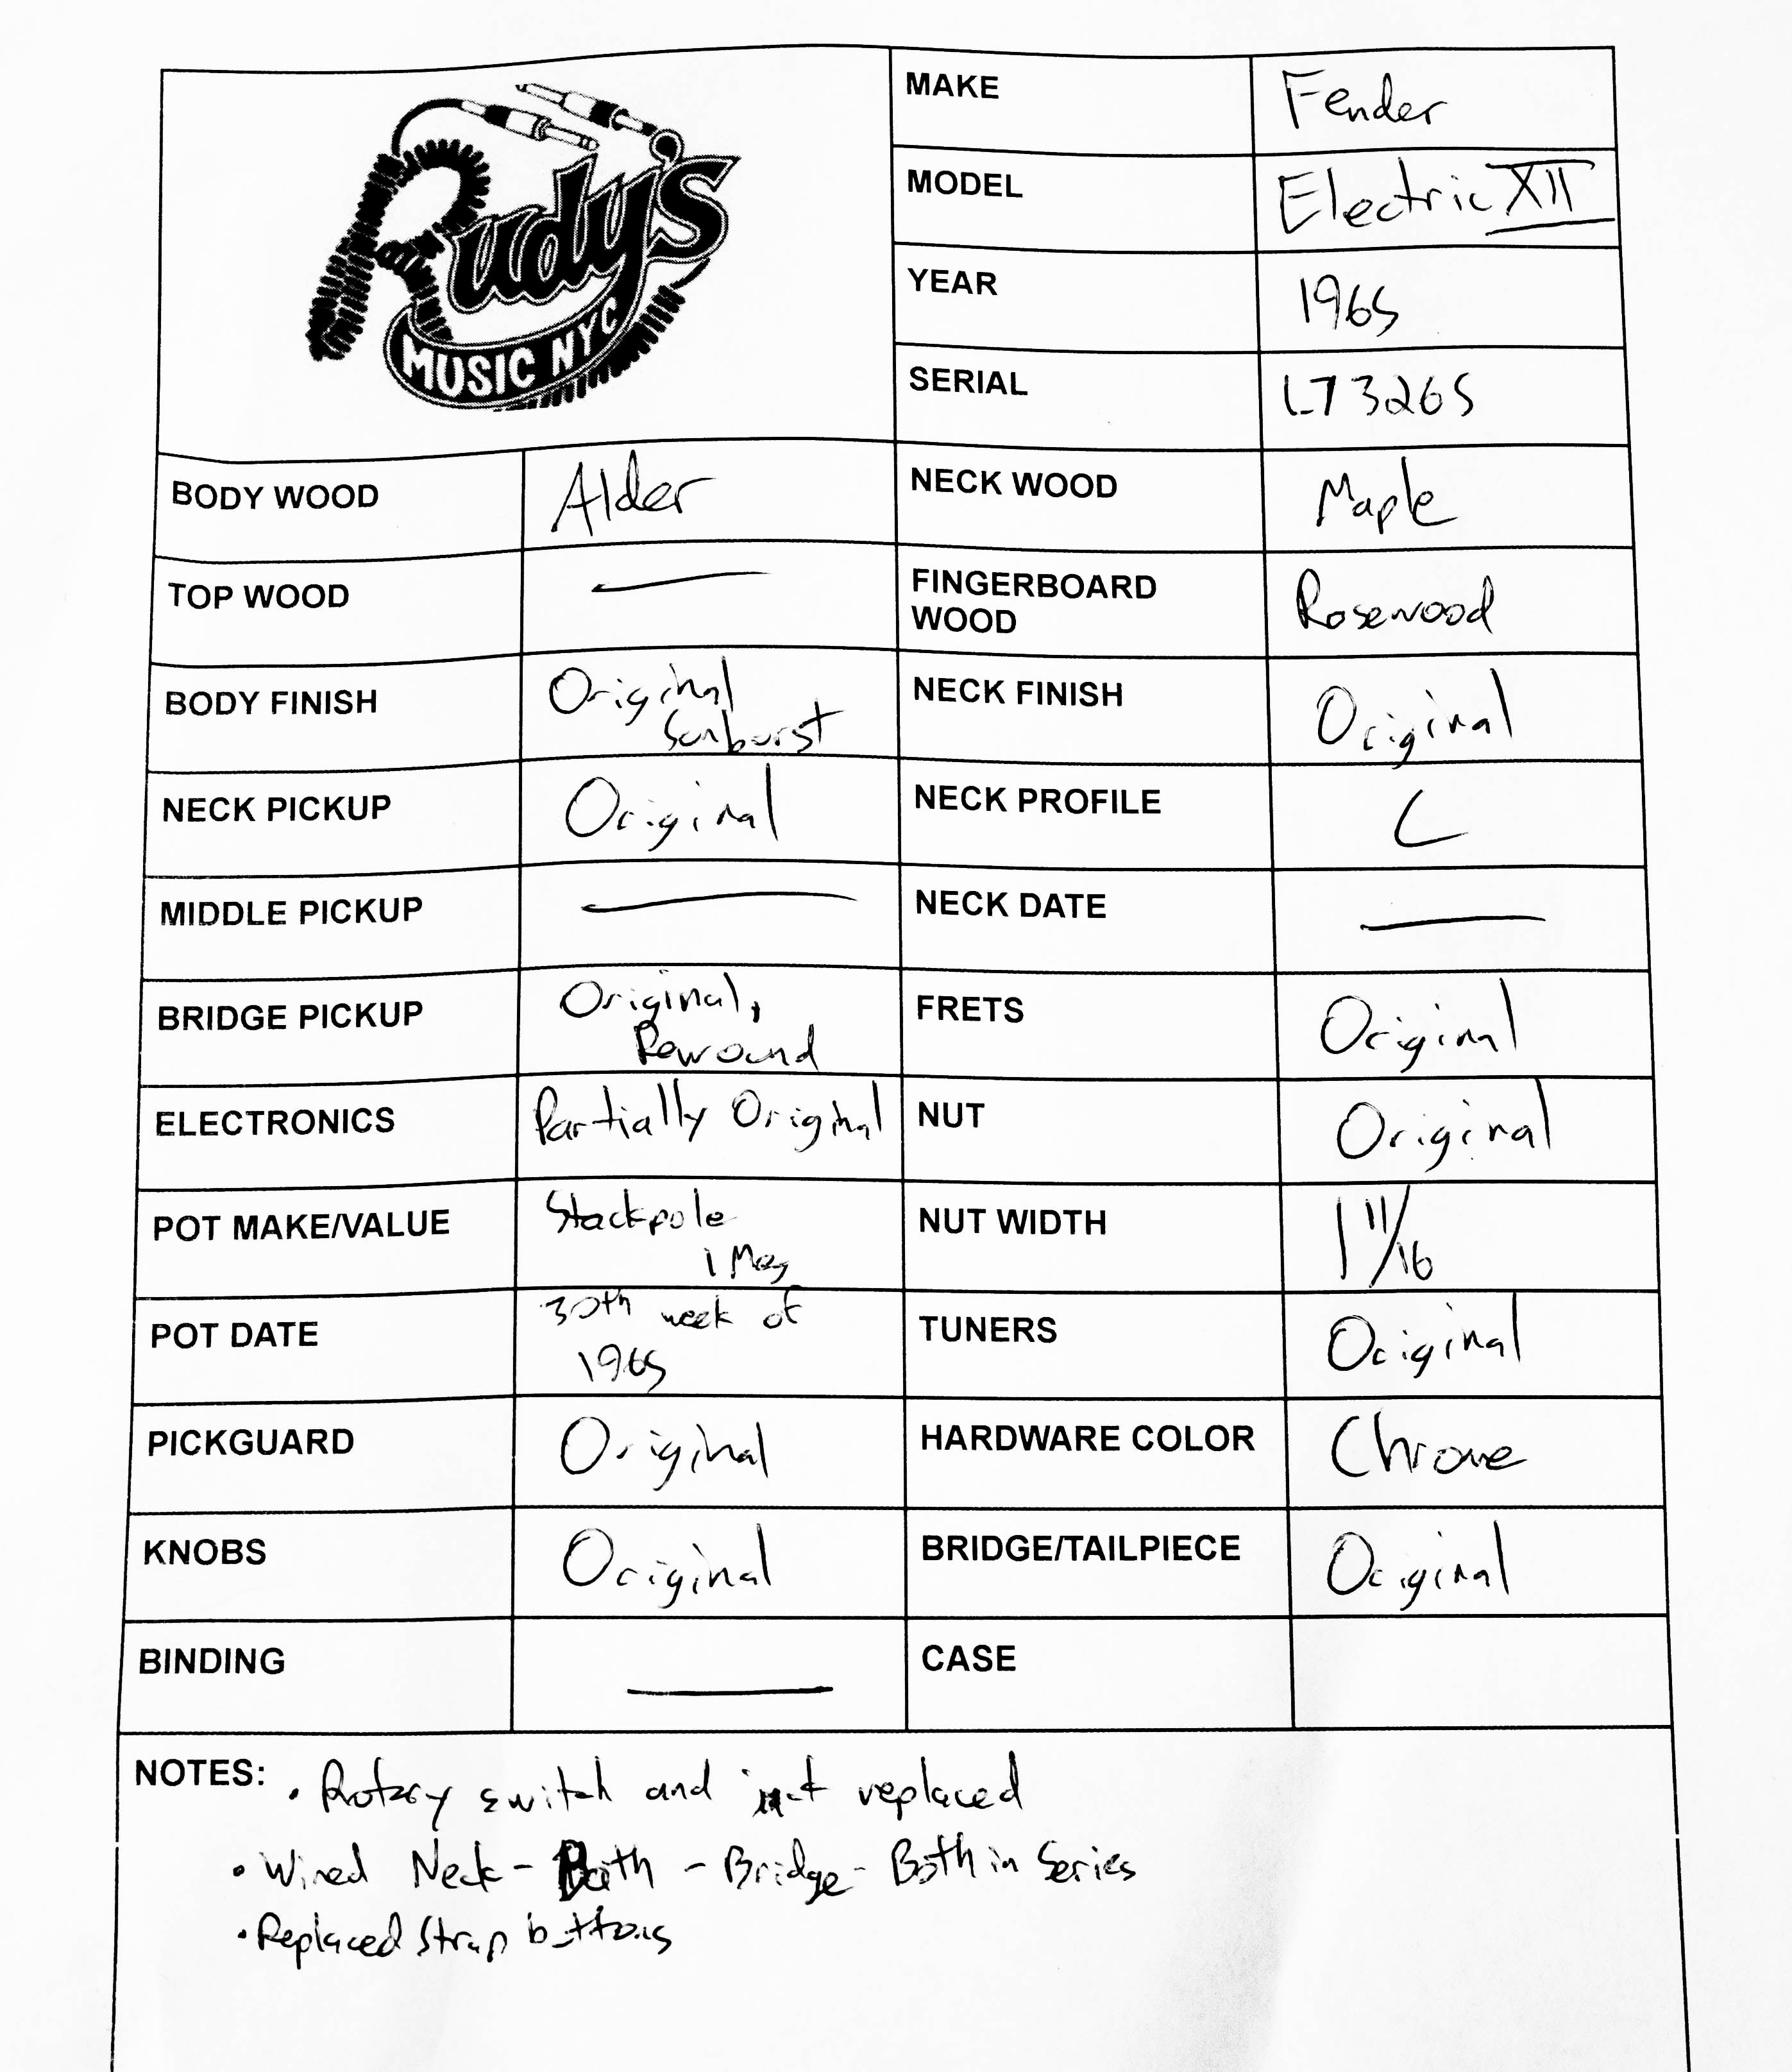 Rudy's
MUSIC NYC
MAKE Fender
MODEL Electric XII
YEAR 1965
SERIAL L73265
BODY WOOD Alder
NECK WOOD Maple
TOP WOOD —
FINGERBOARD
WOOD Rosewood
BODY FINISH Original
Sunburst
NECK FINISH Original
NECK PICKUP Original
NECK PROFILE C
MIDDLE PICKUP —
NECK DATE —
BRIDGE PICKUP Original,
Rewound
FRETS Original
ELECTRONICS Partially Original
NUT Original
POT MAKE/VALUE Stackpole
1 Meg
NUT WIDTH 1 11/16
POT DATE 30th week of
1965
TUNERS Original
PICKGUARD Original
HARDWARE COLOR Chrome
KNOBS Original
BRIDGE/TAILPIECE Original
BINDING —
CASE
NOTES: • Rotary switch and replaced
• Wired Neck - Both - Bridge - Both in Series
• Replaced Strap buttons